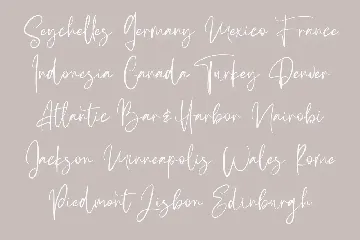 Seychelles Germany Mexico France
Indonesia Canada Turkey Denver
Atlantic Bar&Harbor Nairobi
Jackson Minneapolis Wales Rome
Piedmont Lisbon Edinburgh